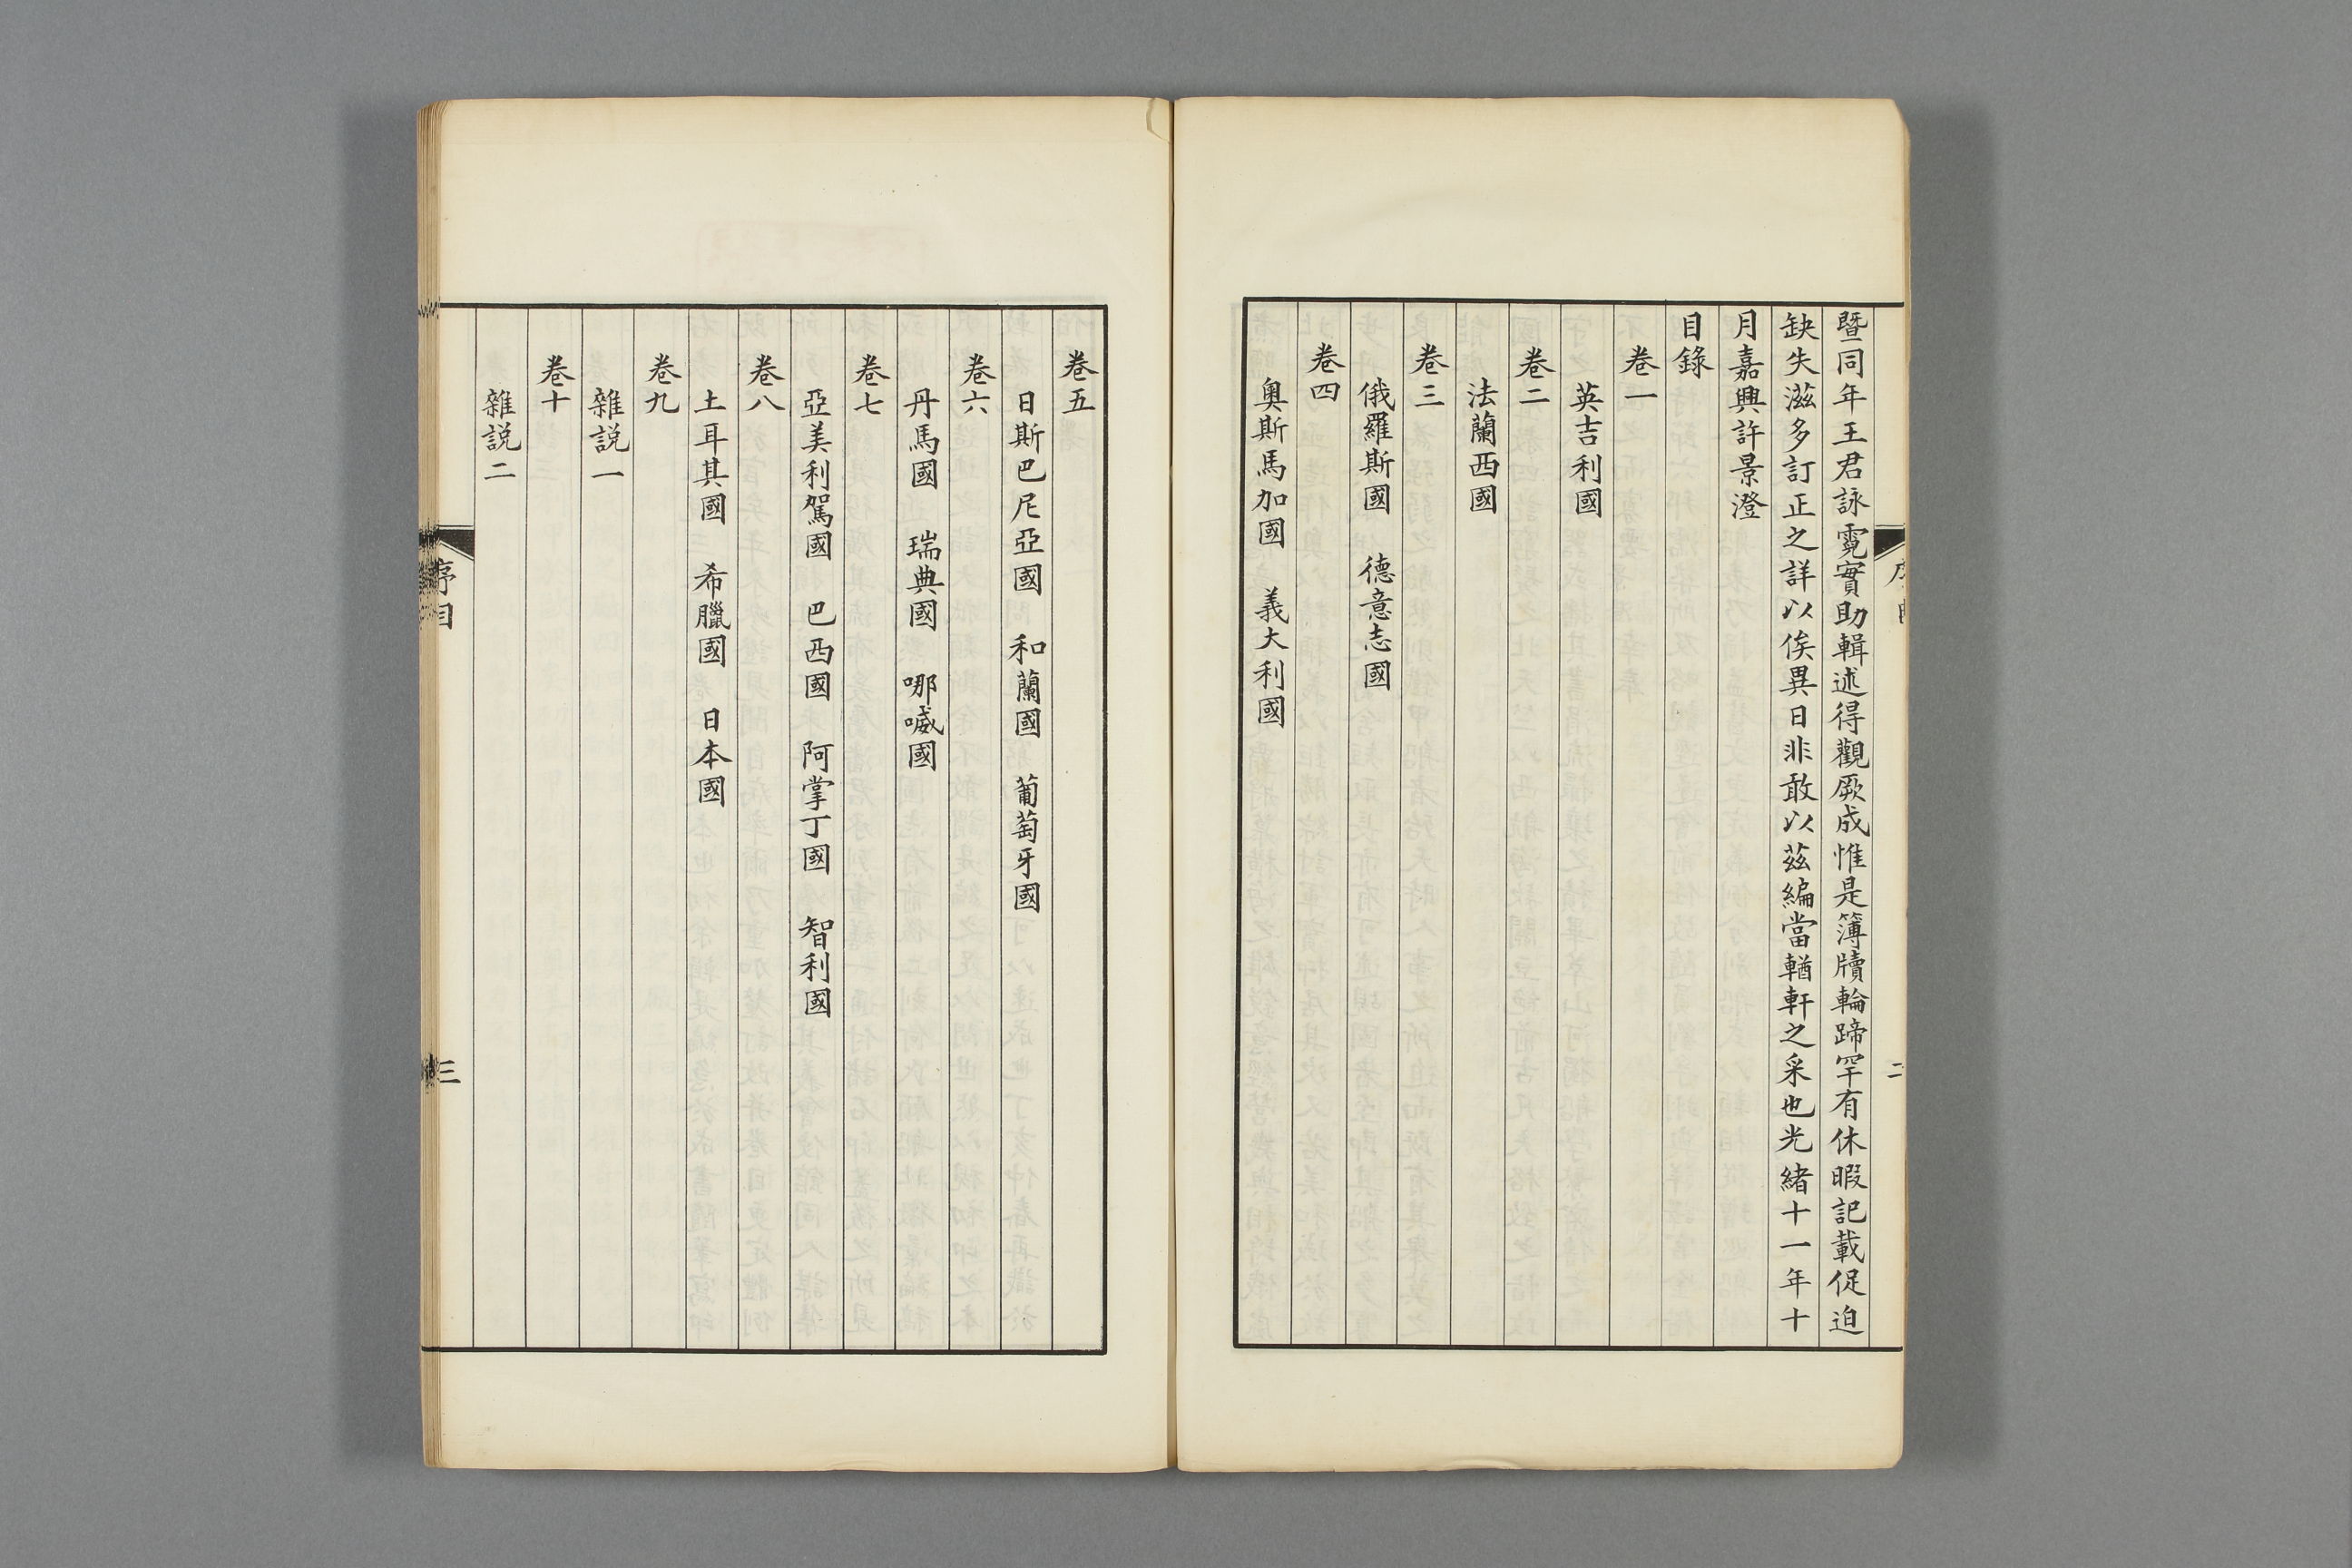 暨同年王君詠霓實助輯述得觀厥成惟是簿牘輪蹄罕有休暇記載促迫
缺失滋多訂正之詳以俟異日非敢以茲編當輶軒之采也光緒十一年十
月嘉興許景澄
目錄
卷一
英吉利國
卷二
法蘭西國
卷三
俄羅斯國 德意志國
卷四
奧斯馬加國 義大利國
二
卷五
日斯巴尼亞國 和蘭國 葡萄牙國
卷六
丹馬國 瑞典國 哪噉國
卷七
亞美利駕國 巴西國 阿掌丁國 智利國
卷八
土耳其國 希臘國 日本國
卷九
雜説一
卷十
雜説二
序目
三